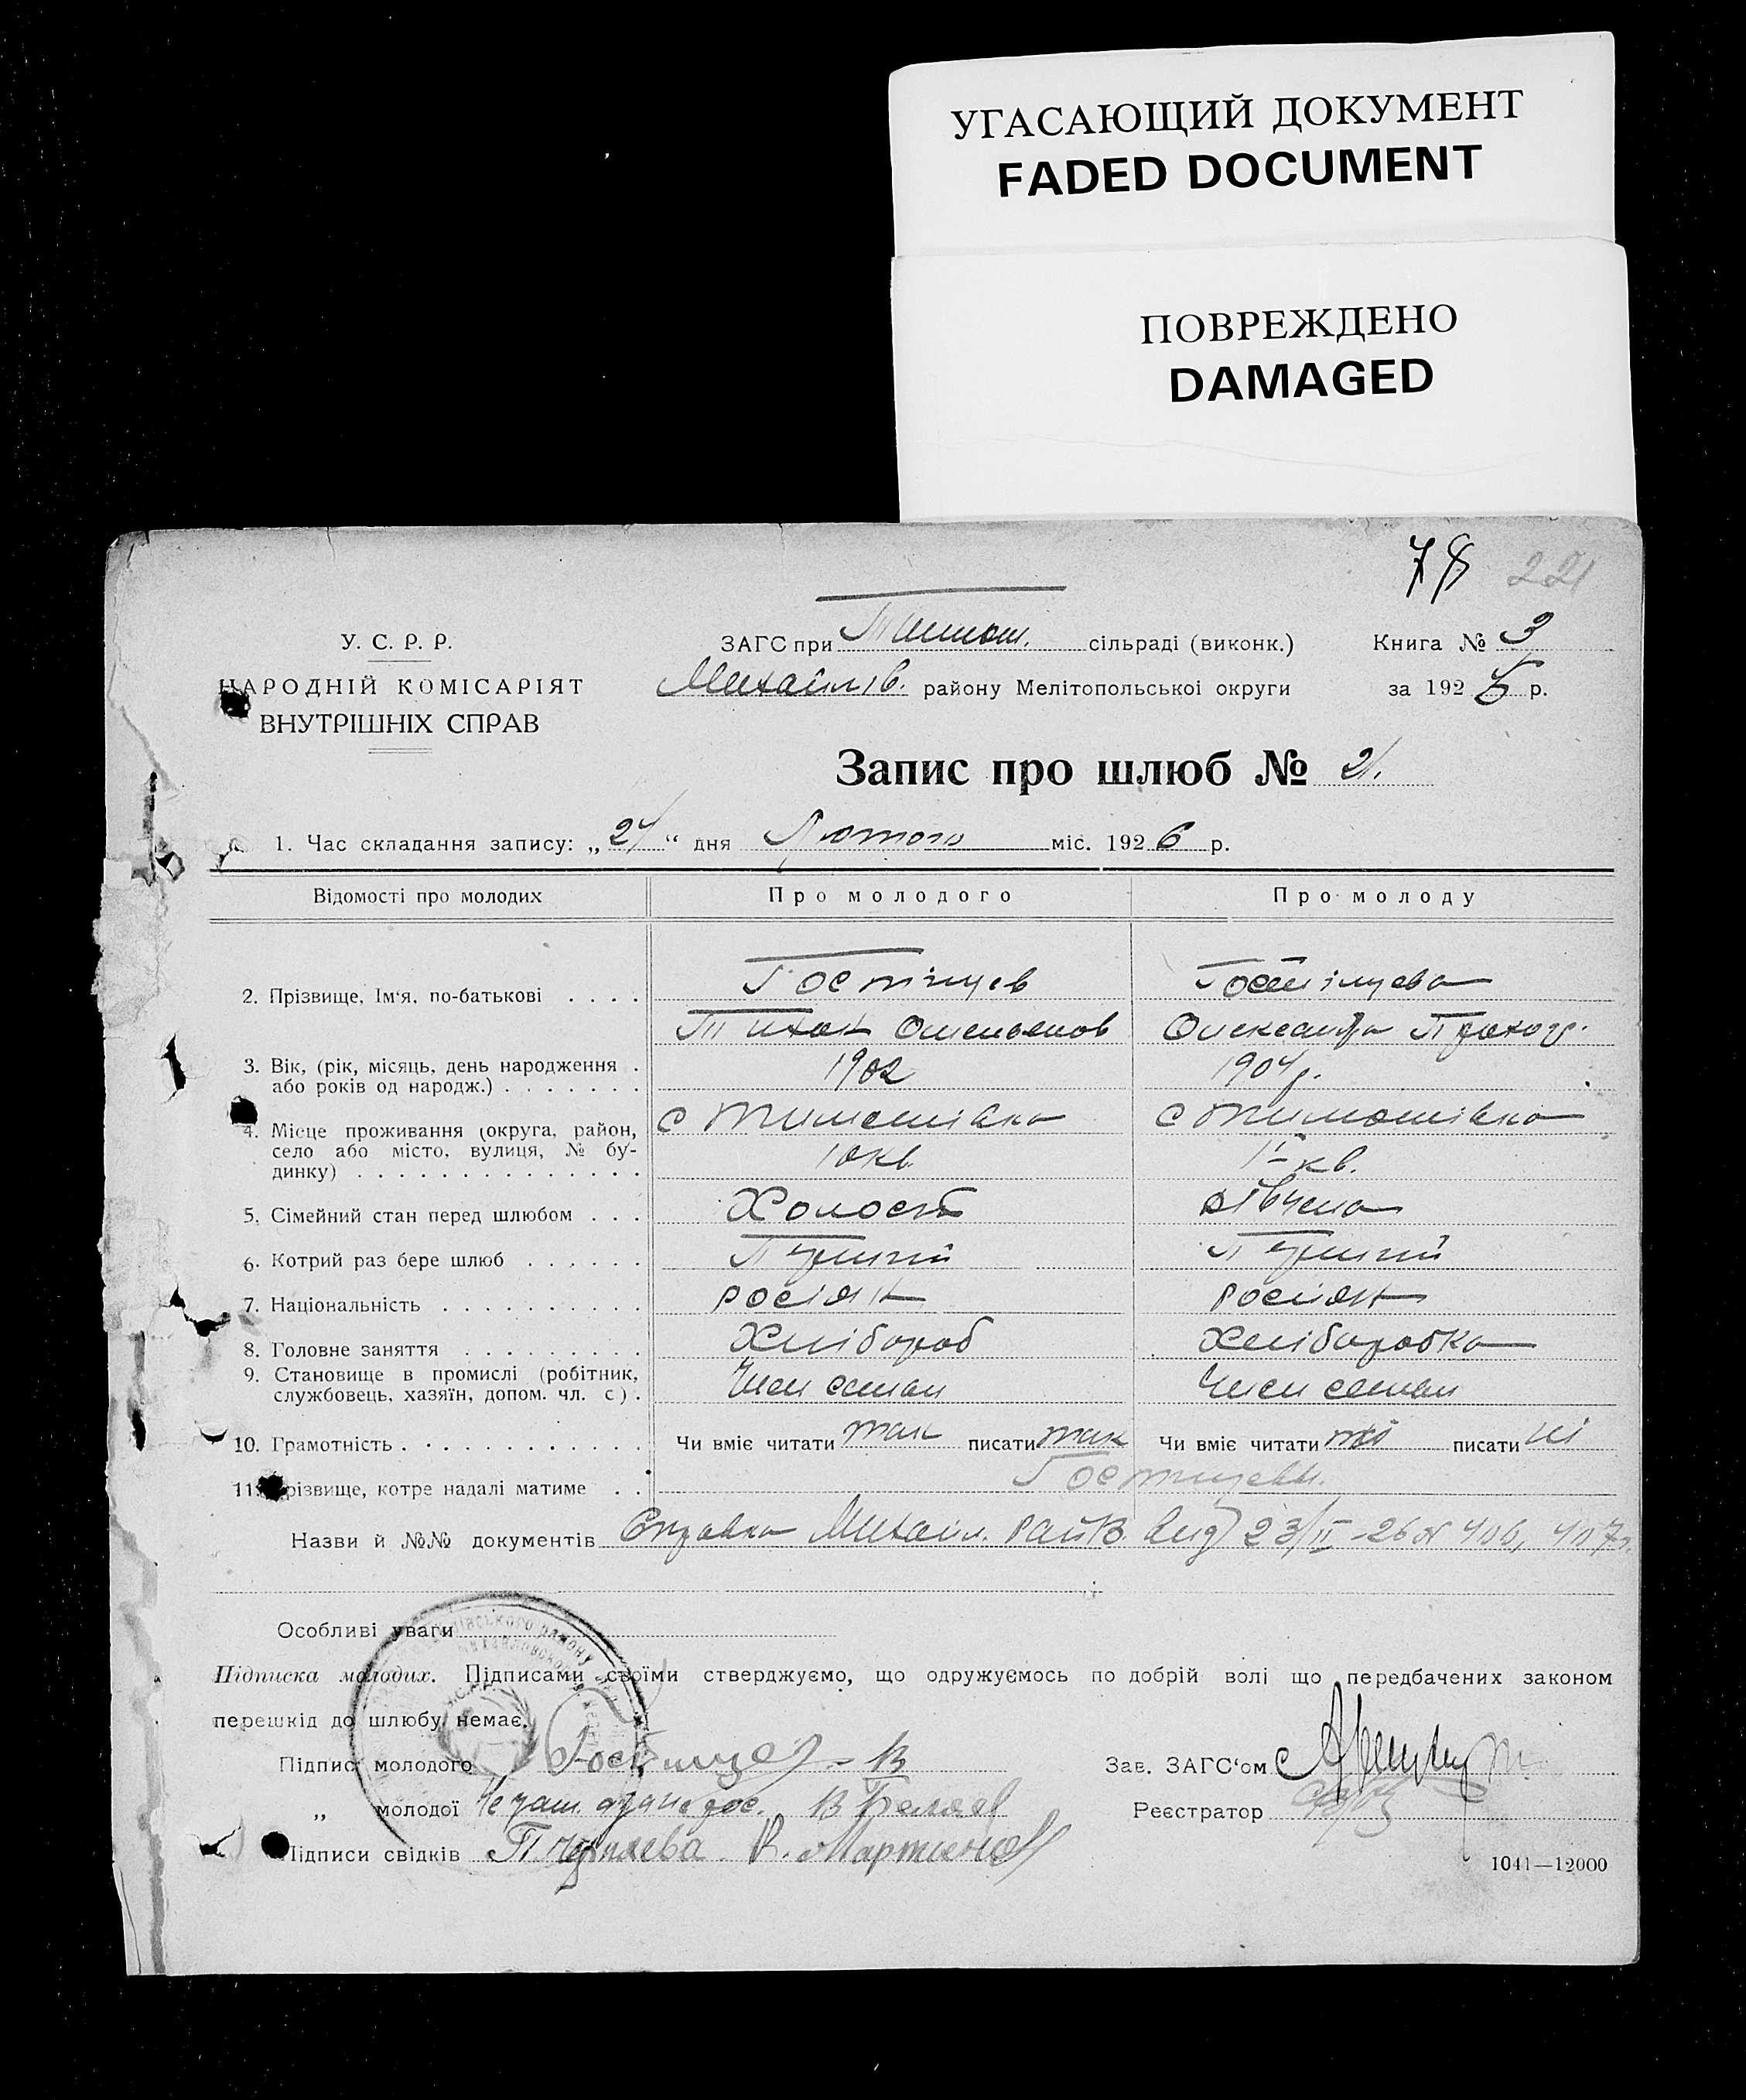 УГАСАЮЩИЙ ДОКУМЕНТ
FADED DOCUMENT
ПОВРЕЖДЕНО
DAMAGED
78 221
У. С. Р. Р.
НАРОДНІЙ КОМІСАРІЯТ
ВНУТРІШНІХ СПРАВ
ЗАГС при Тимош. сільраді (виконк.) Книга № 3
Михайлів. району Мелітопольської округи за 192 р.
Запис про шлюб № 21.
1. Час складання запису: „24“ дня Лютого міс. 1926 р.
Відомості про молодих Про молодого Про молоду
2. Прізвище, Ім'я, по-батькові . . . . Гостіщев Гостіщева
Тихон Омельянов Олександра Прохор.
3. Вік, (рік, місяць, день народження . 1902 1904р.
або років од народж.) . . . . . . .
4. Місце проживання (округа, район, с Тимошівка с Тимошівка
село або місто, вулиця, № бу-
динку) . . . . . . . . . . . . . . 10кв. кв.
5. Сімейний стан перед шлюбом . . . Холост дівчена
6. Котрий раз бере шлюб . . . . . . Перший Перший
7. Національність . . . . . . . . . . росіян росіян
8. Головне заняття . . . . . . . . . Хлібороб Хліборобка
9. Становище в промислі (робітник,
службовець, хазяїн, допом. чл. с) . Член семьи Член семьи
10. Грамотність . . . . . . . . . . . . Чи вміє читати так писати так Чи вміє читати писати ні
11. Прізвище, котре надалі матиме . . Гостищевы.
Назви й №№ документів Справка Михайл. райВ вид 23/II-26 № 406, 407
Особливі уваги
Підписка молодих. Підписами своїми стверджуємо, що одружуємось по добрій волі що передбачених законом
перешкід до шлюбу немає.
Підпис молодого Гостищев Зав. ЗАГС'ом
„ молодої В Беляев Реєстратор
Підписи свідків В. Мартинов
1041—12000